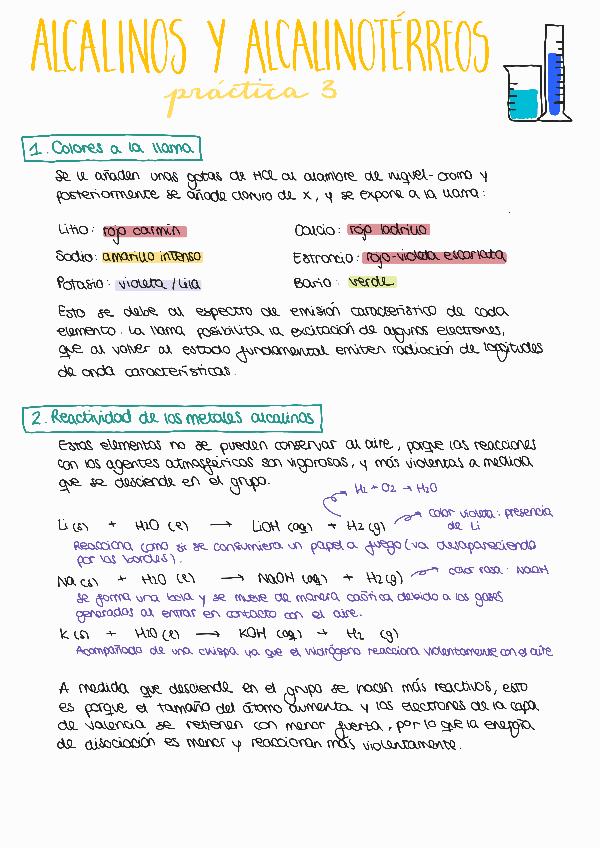 ALCALINOS Y ALCALINOTÉRREOS
práctica 3
1. Colores a la llama
Se le añaden unas gotas de HCl al alambre de níquel-cromo y
posteriormente se añade cloruro de X, y se expone a la llama:
Litio: rojo carmín
Calcio: rojo ladrillo
Sodio: amarillo intenso
Estroncio: rojo-violeta escarlata
Potasio: violeta / lila
Bario: verde
Esto se debe al espectro de emisión característico de cada
elemento. La llama posibilita la excitación de algunos electrones,
que al volver al estado fundamental emiten radiación de longitudes
de onda características.
2. Reactividad de los metales alcalinos
Estos elementos no se pueden conservar al aire, porque las reacciones
con los agentes atmosféricos son vigorosas, y más violentas a medida
que se desciende en el grupo.
H2 + O2 → H2O
Li (s) + H2O (l) → LiOH (aq) + H2 (g)
color violeta: presencia
de Li
Reacciona como si se consumiera un papel a fuego (va desapareciendo
por los bordes).
Na (s) + H2O (l) → NaOH (aq) + H2 (g)
color rosa: NaOH
Se forma una bola y se mueve de manera caótica debido a los gases
generados al entrar en contacto con el aire.
K (s) + H2O (l) → KOH (aq) + H2 (g)
Acompañado de una chispa ya que el hidrógeno reacciona violentamente con el aire
A medida que desciende en el grupo se hacen más reactivos, esto
es porque el tamaño del átomo aumenta y los electrones de la capa
de valencia se retienen con menor fuerza, por lo que la energía
de disociación es menor y reaccionan más violentamente.